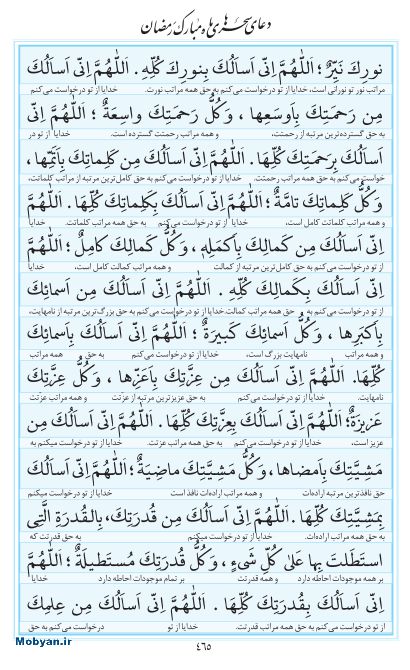 دعای سحرهای ماه مبارک رمضان
نورِكَ نَيِّرٌ؛ اَللّهُمَّ اِنّى اَسأَلُكَ بِنورِكَ كُلِّهِ. اَللّهُمَّ اِنّى اَسأَلُكَ
مراتب نور تو نورانی است، خدایا از تو درخواست می‌کنم به حق همه مراتب نورت. خدایا از تو درخواست می‌کنم
مِن رَحمَتِكَ بِاَوسَعِها، وَكُلُّ رَحمَتِكَ واسِعَةٌ؛ اَللّهُمَّ اِنّى
به حق گسترده‌ترین مرتبه از رحمتت، و همه مراتب رحمتت گسترده است. خدایا از تو در
اَسأَلُكَ بِرَحمَتِكَ كُلِّها. اَللّهُمَّ اِنّى اَسأَلُكَ مِن كَلِماتِكَ بِاَتَمِّها،
خواست می‌کنم به حق همه مراتب رحمتت. خدایا از تو درخواست می‌کنم به حق کامل‌ترین مرتبه از مراتب کلماتت،
وَكُلُّ كَلِماتِكَ تامَّةٌ؛ اَللّهُمَّ اِنّى اَسأَلُكَ بِكَلِماتِكَ كُلِّها. اَللّهُمَّ
و همه مراتب کلماتت کامل است، خدایا از تو درخواست می‌کنم به حق همه مراتب کلماتت. خدایا
اِنّى اَسأَلُكَ مِن كَمالِكَ بِاَكمَلِهِ، وَكُلُّ كَمالِكَ كامِلٌ؛ اَللّهُمَّ
از تو درخواست می‌کنم به حق کامل‌ترین مرتبه از کمالت و همه مراتب کمالت کامل است، خدایا
اِنّى اَسأَلُكَ بِكَمالِكَ كُلِّهِ. اَللّهُمَّ اِنّى اَسأَلُكَ مِن اَسمائِكَ
از تو درخواست می‌کنم به حق همه مراتب کمالت. خدایا از تو درخواست می‌کنم به حق بزرگ‌ترین مرتبه از نامهایت،
بِاَكبَرِها، وَكُلُّ اَسمائِكَ كَبيرَةٌ؛ اَللّهُمَّ اِنّى اَسأَلُكَ بِاَسمائِكَ
و همه مراتب نامهایت بزرگ است، خدایا از تو درخواست می‌کنم به حق همه مراتب
كُلِّها. اَللّهُمَّ اِنّى اَسأَلُكَ مِن عِزَّتِكَ بِاَعَزِّها، وَكُلُّ عِزَّتِكَ
نامهایت. خدایا از تو درخواست می‌کنم به حق عزیزترین مرتبه از عزتت و همه مراتب عزتت
عَزيزَةٌ؛ اَللّهُمَّ اِنّى اَسأَلُكَ بِعِزَّتِكَ كُلِّها. اَللّهُمَّ اِنّى اَسأَلُكَ مِن
عزیز است، خدایا از تو درخواست می‌کنم به حق همه مراتب عزتت. خدایا از تو درخواست میکنم به
مَشِيَّتِكَ بِاَمضاها، وَكُلُّ مَشِيَّتِكَ ماضِيَةٌ؛ اَللّهُمَّ اِنّى اَسأَلُكَ
حق نافذترین مرتبه اراده‌ات و همه مراتب اراده‌ات نافذ است خدایا از تو درخواست میکنم
بِمَشِيَّتِكَ كُلِّها. اَللّهُمَّ اِنّى اَسأَلُكَ مِن قُدرَتِكَ، بِالقُدرَةِ الَّتِى
به حق همه مراتب اراده‌ات. خدایا از تو درخواست میکنم به حق قدرتت که
استَطَلتَ بِها عَلى كُلِّ شَىءٍ، وَكُلُّ قُدرَتِكَ مُستَطيلَةٌ؛ اَللّهُمَّ
بر همه موجودات احاطه دارد و همه قدرتت بر تمام موجودات احاطه دارد خدایا
اِنّى اَسأَلُكَ بِقُدرَتِكَ كُلِّها. اَللّهُمَّ اِنّى اَسأَلُكَ مِن عِلمِكَ
از تو درخواست می‌کنم به حق همه مراتب قدرتت. خدایا از تو درخواست می‌کنم به حق
٤٦٥
Mobyan.ir